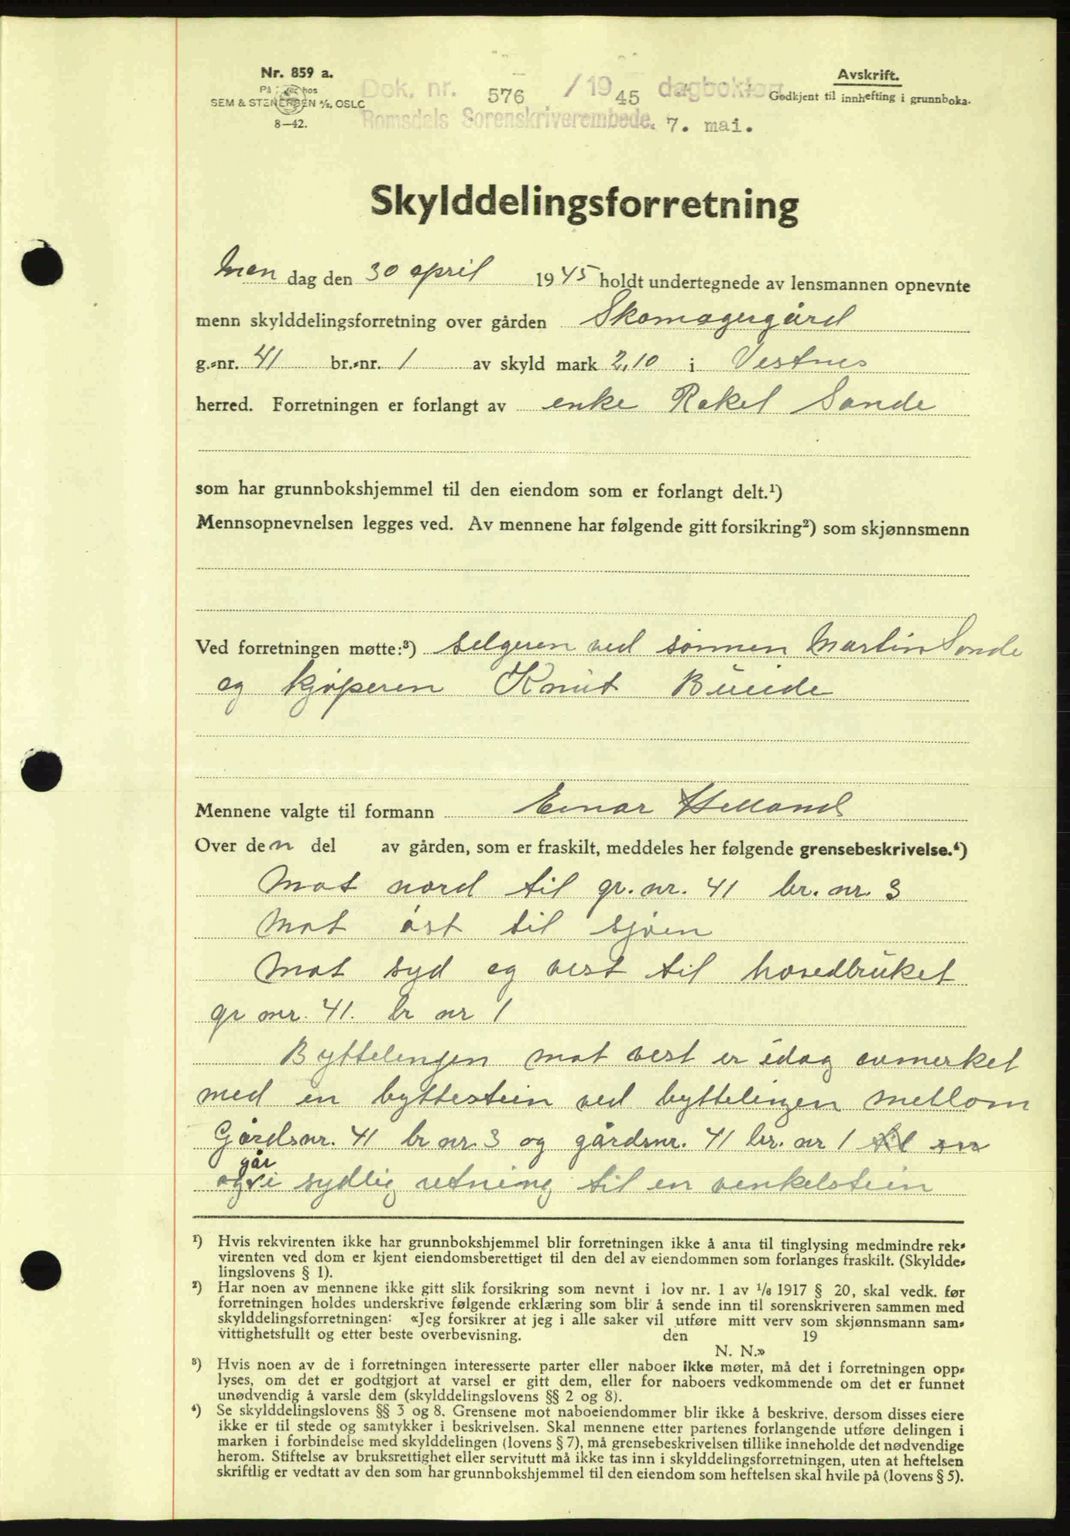 Nr. 859 a.
På lager hos
SEM & STENERSEN A/S, OSLO
8—42.
Dok. nr. 576 /1945 dagboktatt
Romsdals Sorenskriverembede. 7. mai.
Avskrift.
Godkjent til innhefting i grunnboka.
Skylddelingsforretning
Man dag den 30 april 1945 holdt undertegnede av lensmannen opnevnte
menn skylddelingsforretning over gården Skomagergård
g.-nr. 41 br.-nr. 1 av skyld mark 2,10 i Vestnes
herred. Forretningen er forlangt av enke Rakel Sande
som har grunnbokshjemmel til den eiendom som er forlangt delt.¹)
Mennsopnevnelsen legges ved. Av mennene har følgende gitt forsikring²) som skjønnsmenn
Ved forretningen møtte:³) selgeren ved sønnen Martin Sande
og kjøperen Knut
Mennene valgte til formann Einar Helland
Over den del av gården, som er fraskilt, meddeles her følgende grensebeskrivelse.⁴)
Mot nord til gr. nr. 41 br. nr. 3
Mot øst til sjøen
Mot syd og vest til hovedbruket
gr nr. 41. br nr 1
Byttelingen mot vest er idag avmerket
med en byttestein ved byttelingen mellom
Gårdsnr. 41 br nr. 3 og gårdsnr. 41 br. nr 1
og går i sydlig retning til en venkelstein
¹) Hvis rekvirenten ikke har grunnbokshjemmel blir forretningen ikke å anta til tinglysing medmindre rek-
virenten ved dom er kjent eiendomsberettiget til den del av eiendommen som forlanges fraskilt. (Skyldde-
lingslovens § 1).
²) Har noen av mennene ikke gitt slik forsikring som nevnt i lov nr. 1 av 1/6 1917 § 20, skal vedk. før
forretningen holdes underskrive følgende erklæring som blir å sende inn til sorenskriveren sammen med
skylddelingsforretningen: «Jeg forsikrer at jeg i alle saker vil utføre mitt verv som skjønnsmann sam-
vittighetsfullt og etter beste overbevisning. den 19
N. N.»
³) Hvis noen av de i forretningen interesserte parter eller naboer ikke møter, må det i forretningen opp-
lyses, om det er godtgjort at varsel er gitt dem, eller for naboers vedkommende om det er funnet
unødvendig å varsle dem (skylddelingslovens §§ 2 og 8).
⁴) Se skylddelingslovens §§ 3 og 8. Grensene mot naboeiendommer blir ikke å beskrive, dersom disses eiere
ikke er til stede og samtykker i beskrivelsen. Skal mennene etter partenes forlangende utføre delingen i
marken i forbindelse med skylddelingen (lovens § 7), må grensebeskrivelsen tillike inneholde det nødvendige
herom. Stiftelse av bruksrettighet eller servitutt må ikke tas inn i skylddelingsforretningen, uten at heftelsen
skriftlig er vedtatt av den som har grunnbokshjemmel til den eiendom som heftelsen skal hvile på (lovens § 5).